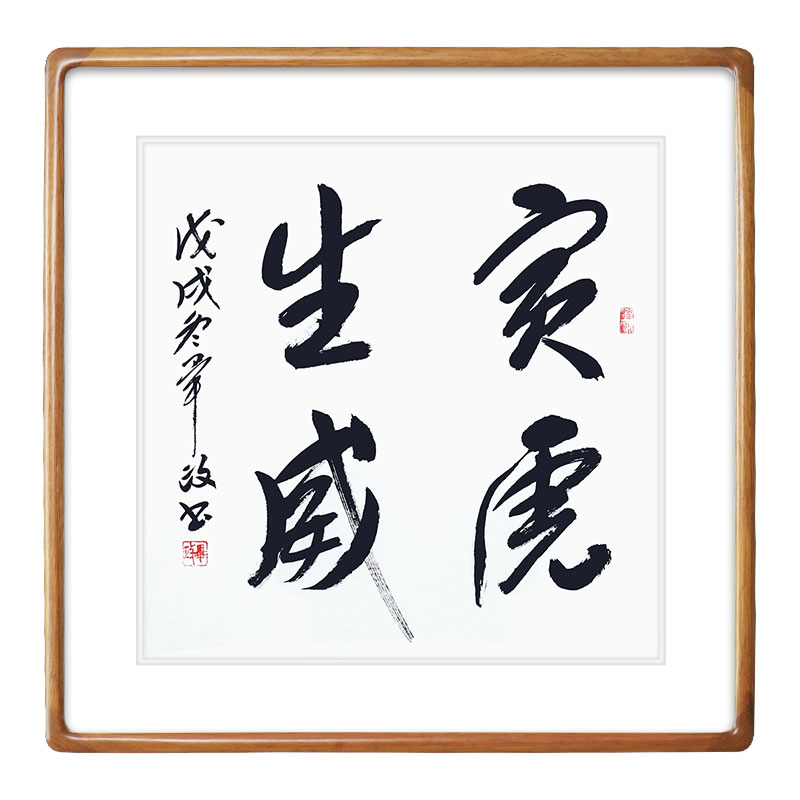 寅虎
生威
戊戌冬畢政书